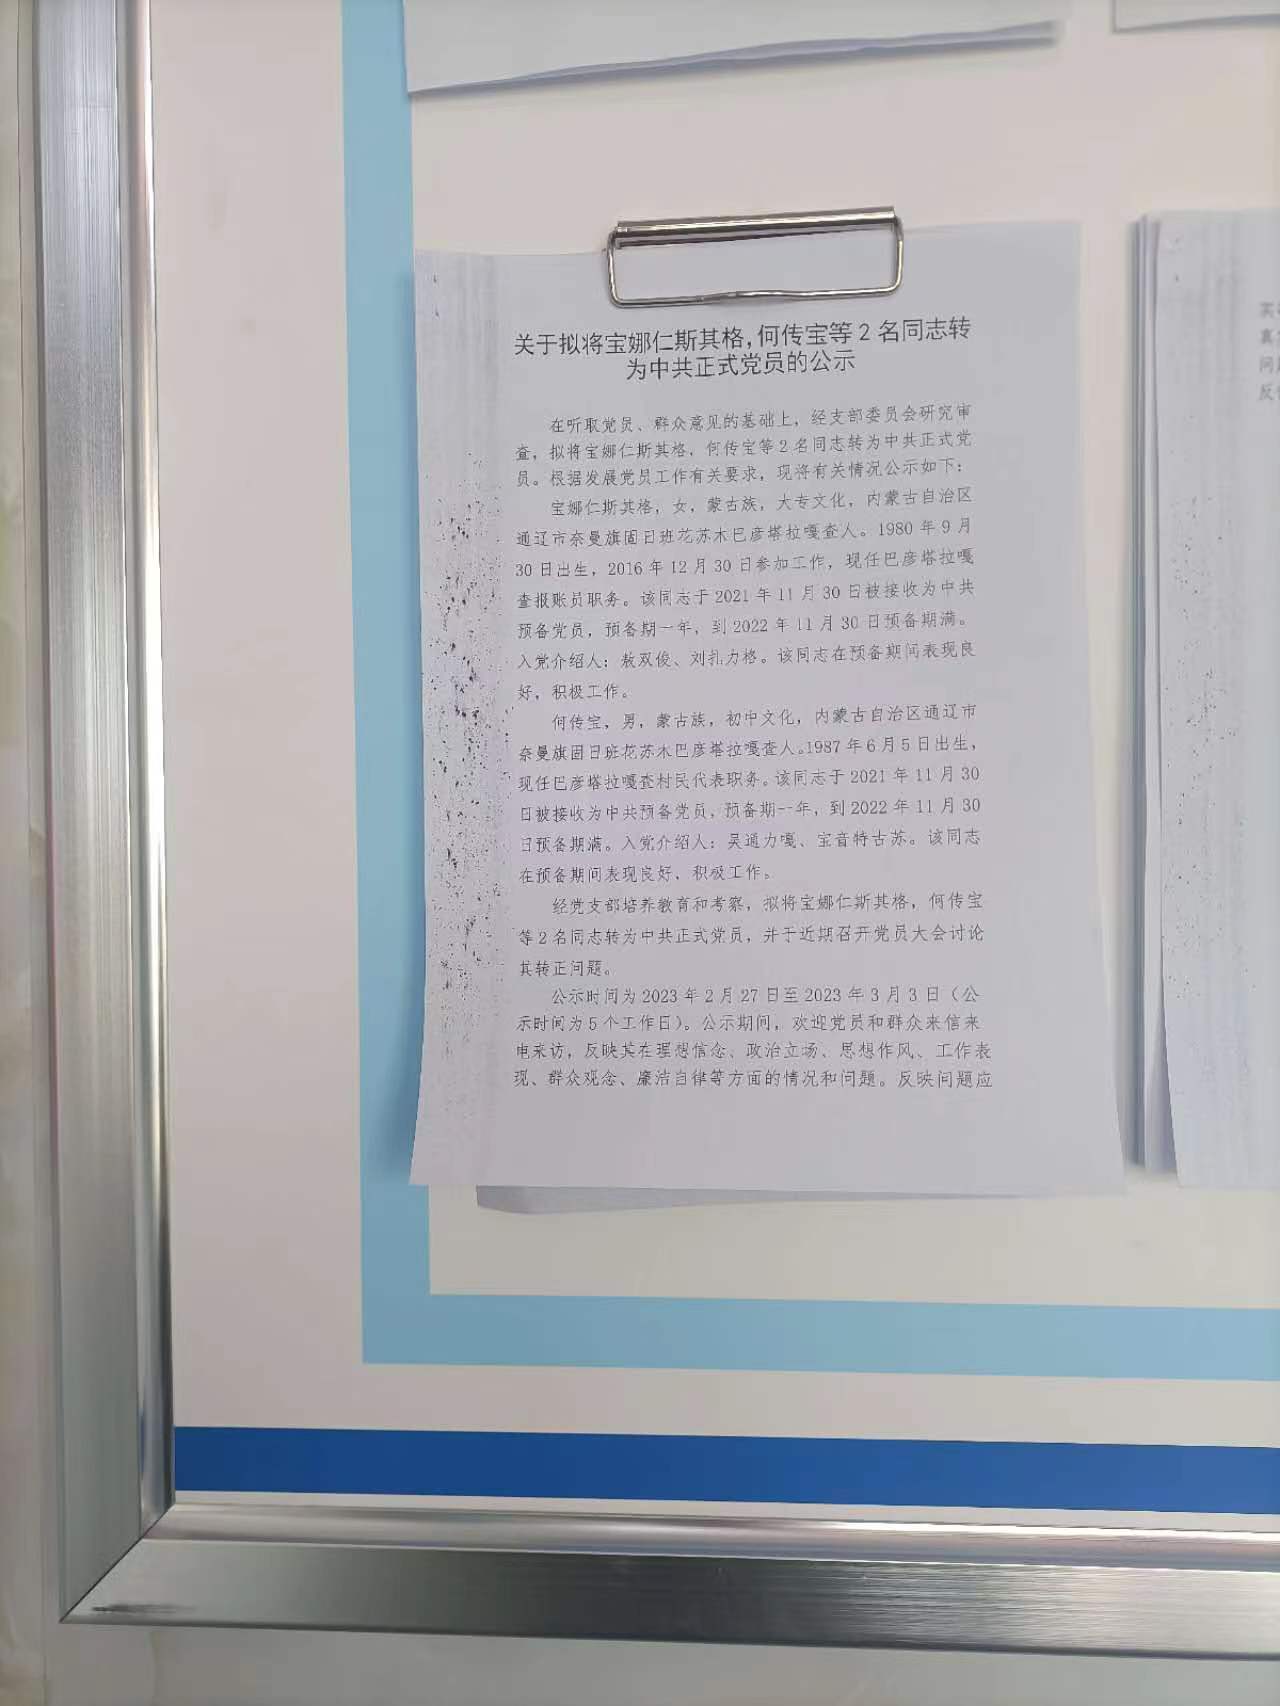 关于拟将宝娜仁斯其格,何传宝等2名同志转
为中共正式党员的公示
在听取党员、群众意见的基础上，经支部委员会研究审
查，拟将宝娜仁斯其格，何传宝等2名同志转为中共正式党
员。根据发展党员工作有关要求，现将有关情况公示如下：
宝娜仁斯其格，女，蒙古族，大专文化，内蒙古自治区
通辽市奈曼旗固日班花苏木巴彦塔拉嘎查人。1980年9月
30日出生，2016年12月30日参加工作，现任巴彦塔拉嘎
查报账员职务。该同志于2021年11月30日被接收为中共
预备党员，预备期一年，到2022年11月30日预备期满。
入党介绍人：敖双俊、刘扎力格。该同志在预备期间表现良
好，积极工作。
何传宝，男，蒙古族，初中文化，内蒙古自治区通辽市
奈曼旗固日班花苏木巴彦塔拉嘎查人。1987年6月5日出生，
现任巴彦塔拉嘎查村民代表职务。该同志于2021年11月30
日被接收为中共预备党员，预备期一年，到2022年11月30
日预备期满。入党介绍人：吴通力嘎、宝音特古苏。该同志
在预备期间表现良好，积极工作。
经党支部培养教育和考察，拟将宝娜仁斯其格，何传宝
等2名同志转为中共正式党员，并于近期召开党员大会讨论
其转正问题。
公示时间为2023年2月27日至2023年3月3日（公
示时间为5个工作日）。公示期间，欢迎党员和群众来信来
电来访，反映其在理想信念、政治立场、思想作风、工作表
现、群众观念、廉洁自律等方面的情况和问题。反映问题应